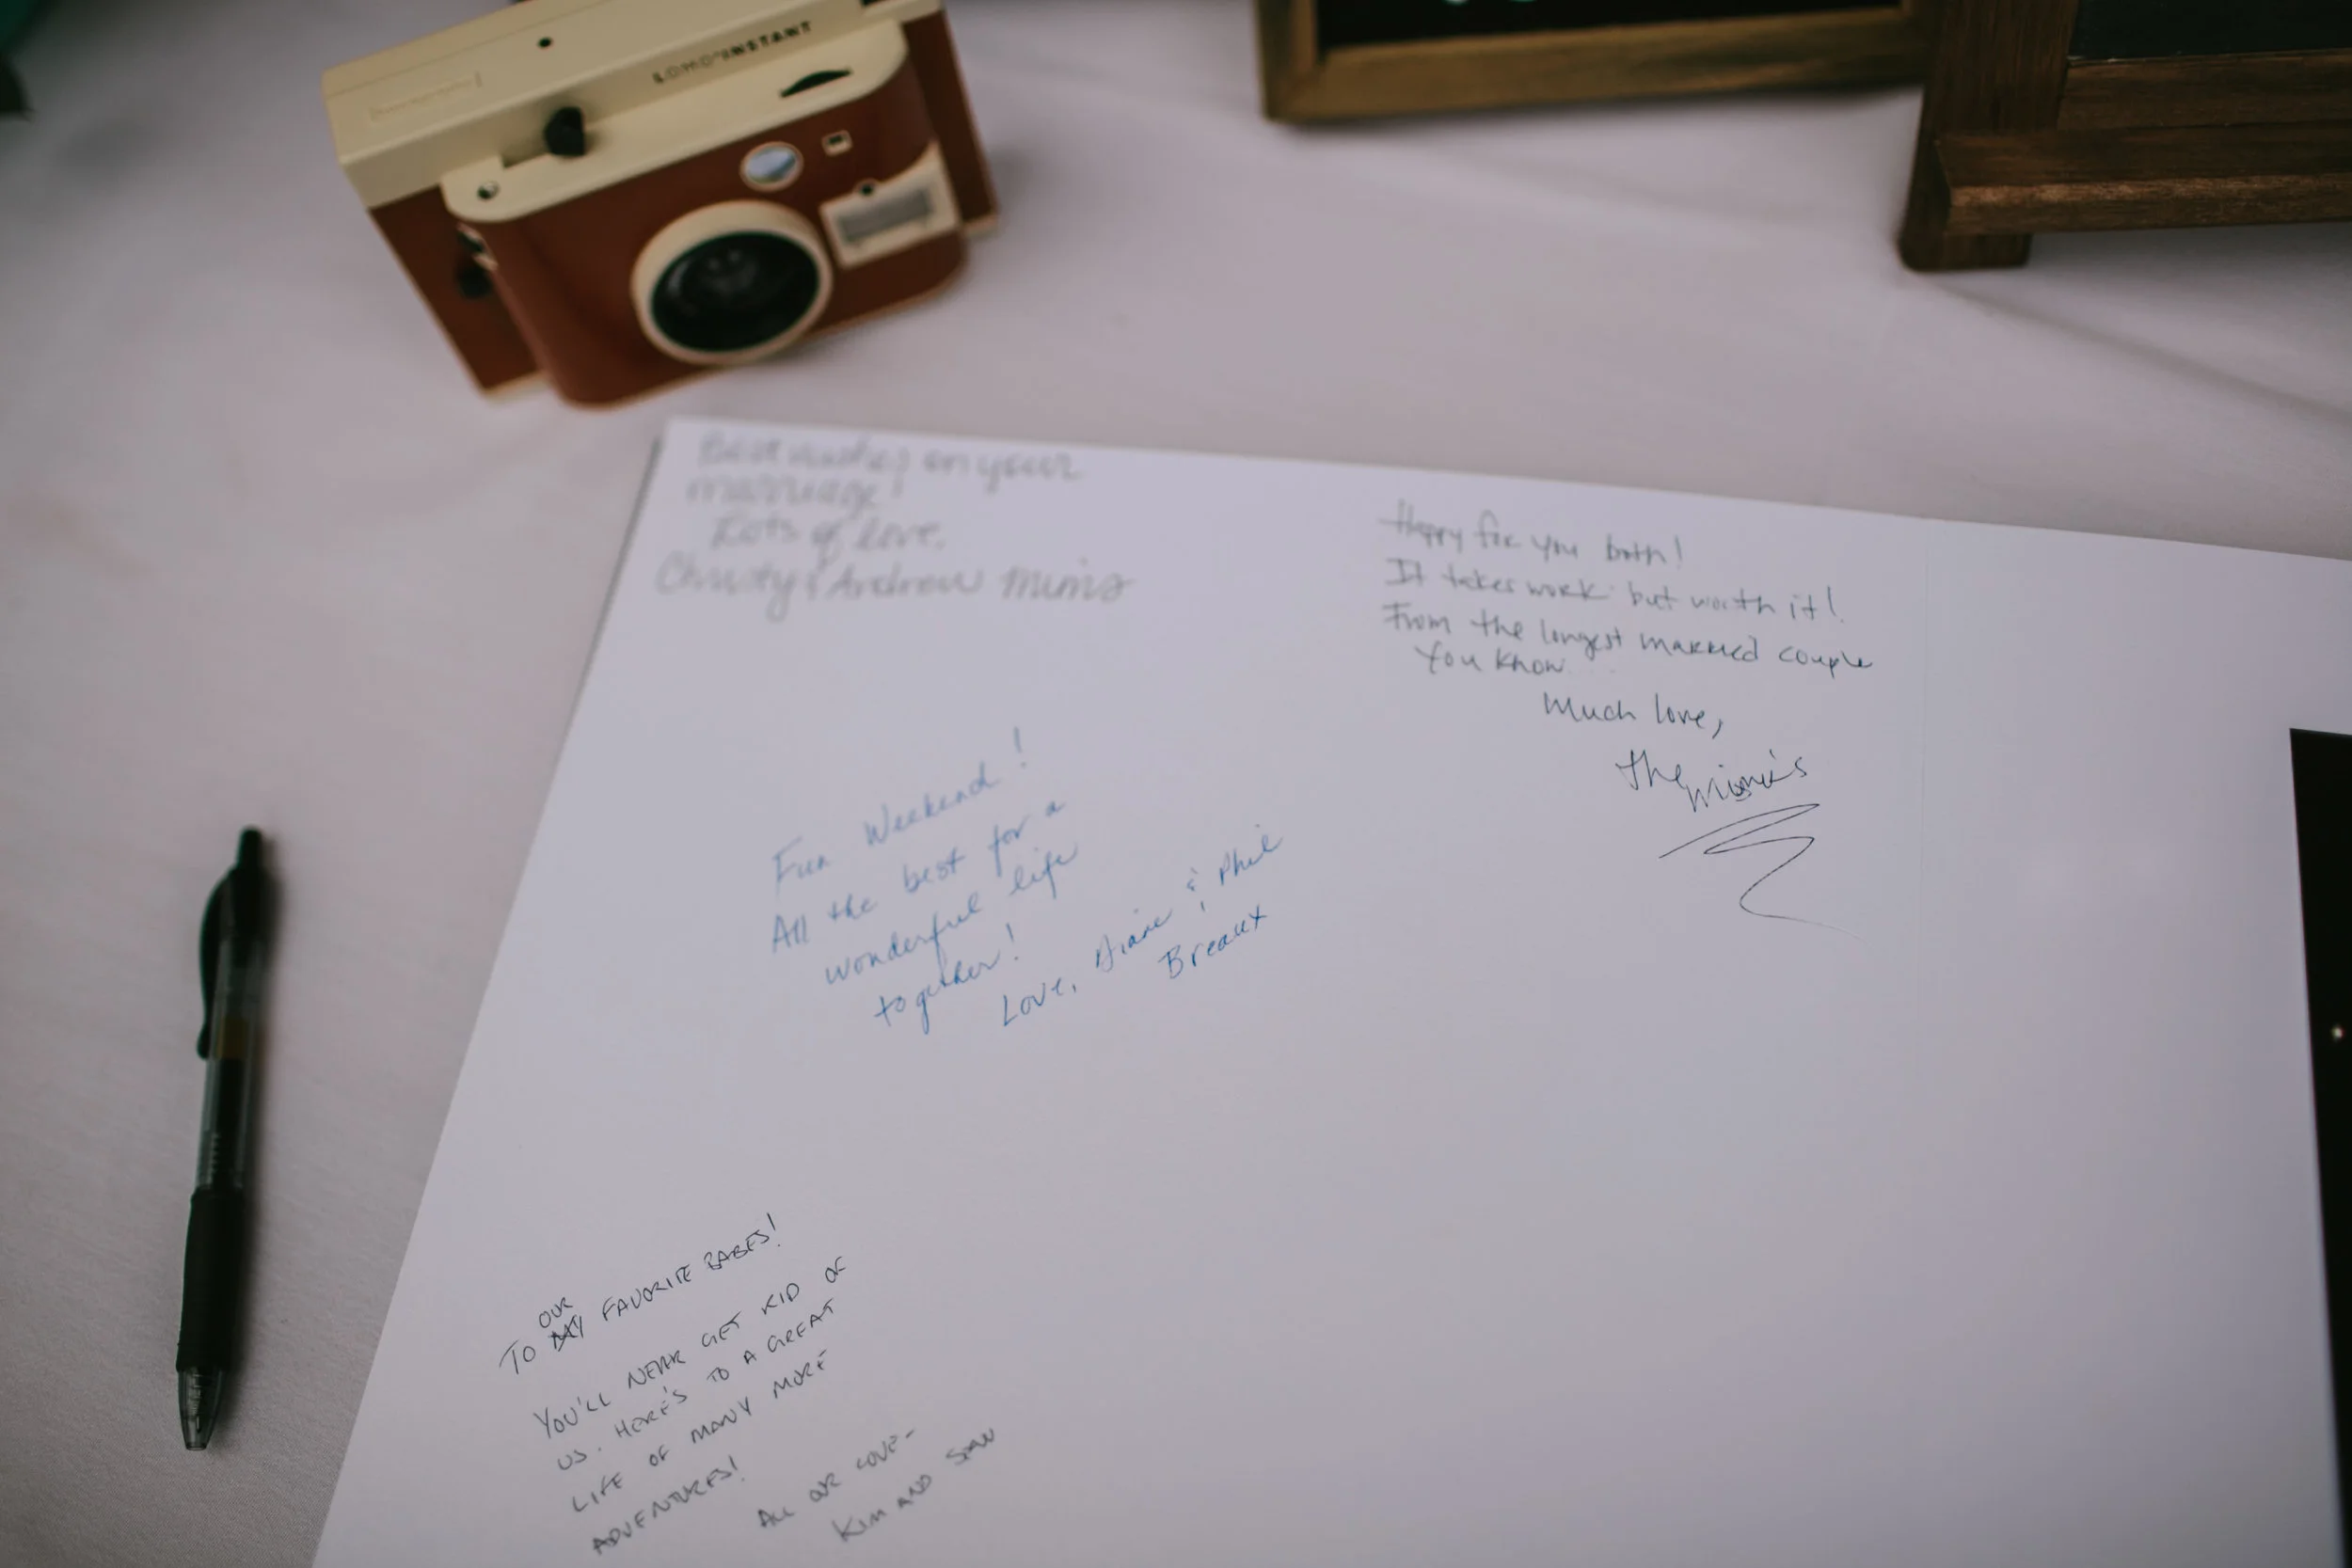 LOMO'INSTANT
Best wishes on your
marriage!
Lots of love,
Christy & Andrew Mims
Happy for you both!
It takes work but worth it!
From the longest married couple
You know
Much love,
The Mims's
Fun Weekend!
All the best for a
wonderful life
together!
Love, Diane & Phil
Breaux
OUR
TO MY FAVORITE BABES!
YOU'LL NEVER GET RID OF
US. HERE'S TO A GREAT
LIFE OF MANY MORE
ADVENTURES!
ALL OUR LOVE-
KIM AND SEAN